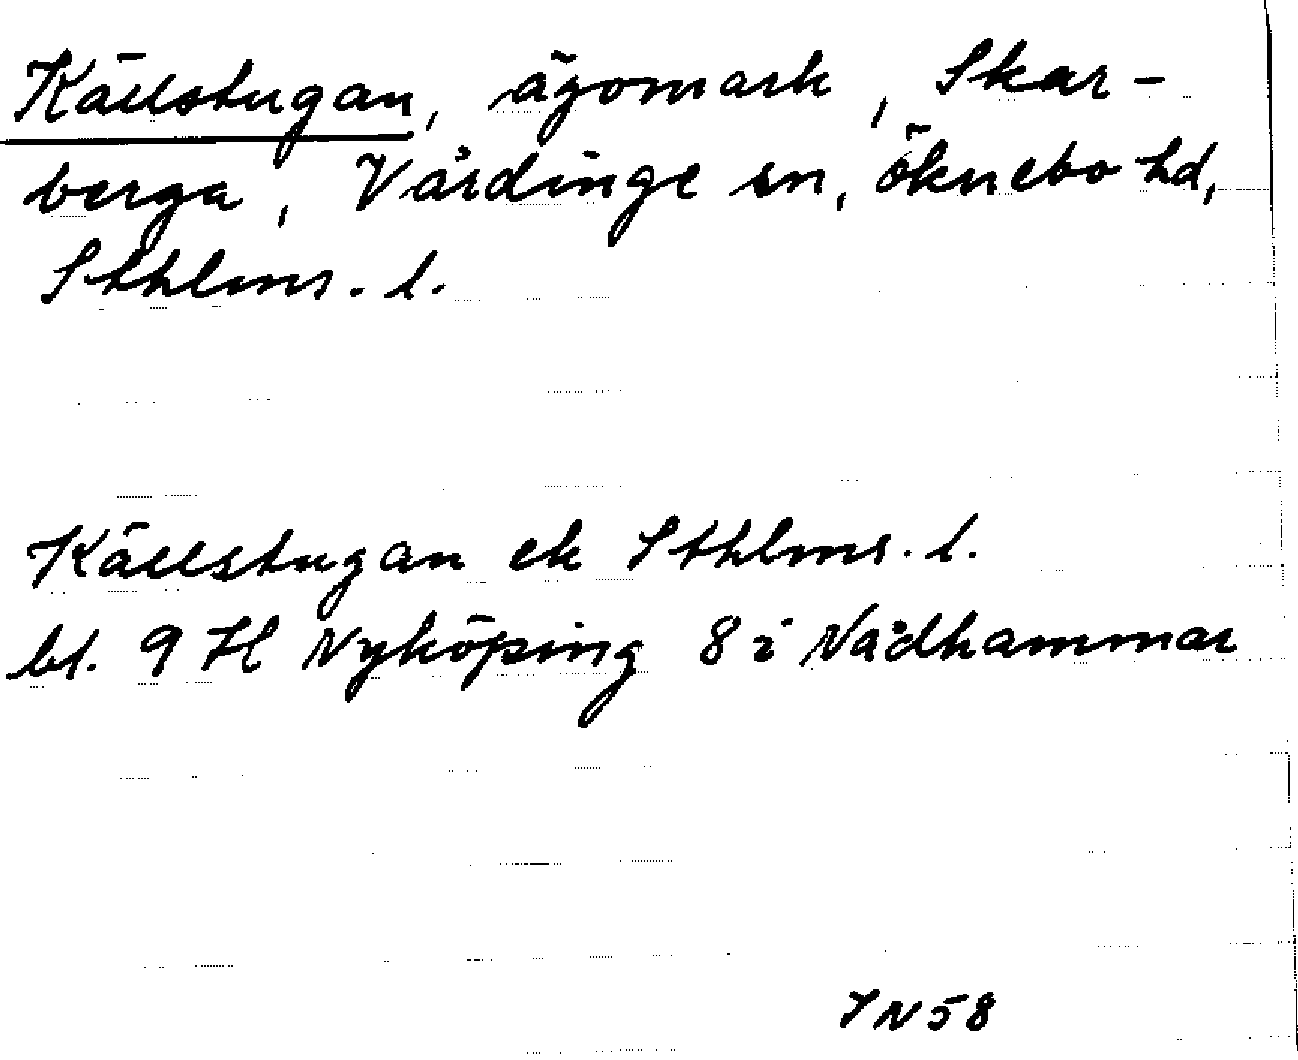 Källstugan, ägomark, Skar-
berga, Vårdinge sn, Öknebo hd,
Sthlms. l.
Källstugan ek Sthlms. l.
bl. 9 H Nyköping 8 i Nådhammar
IN58